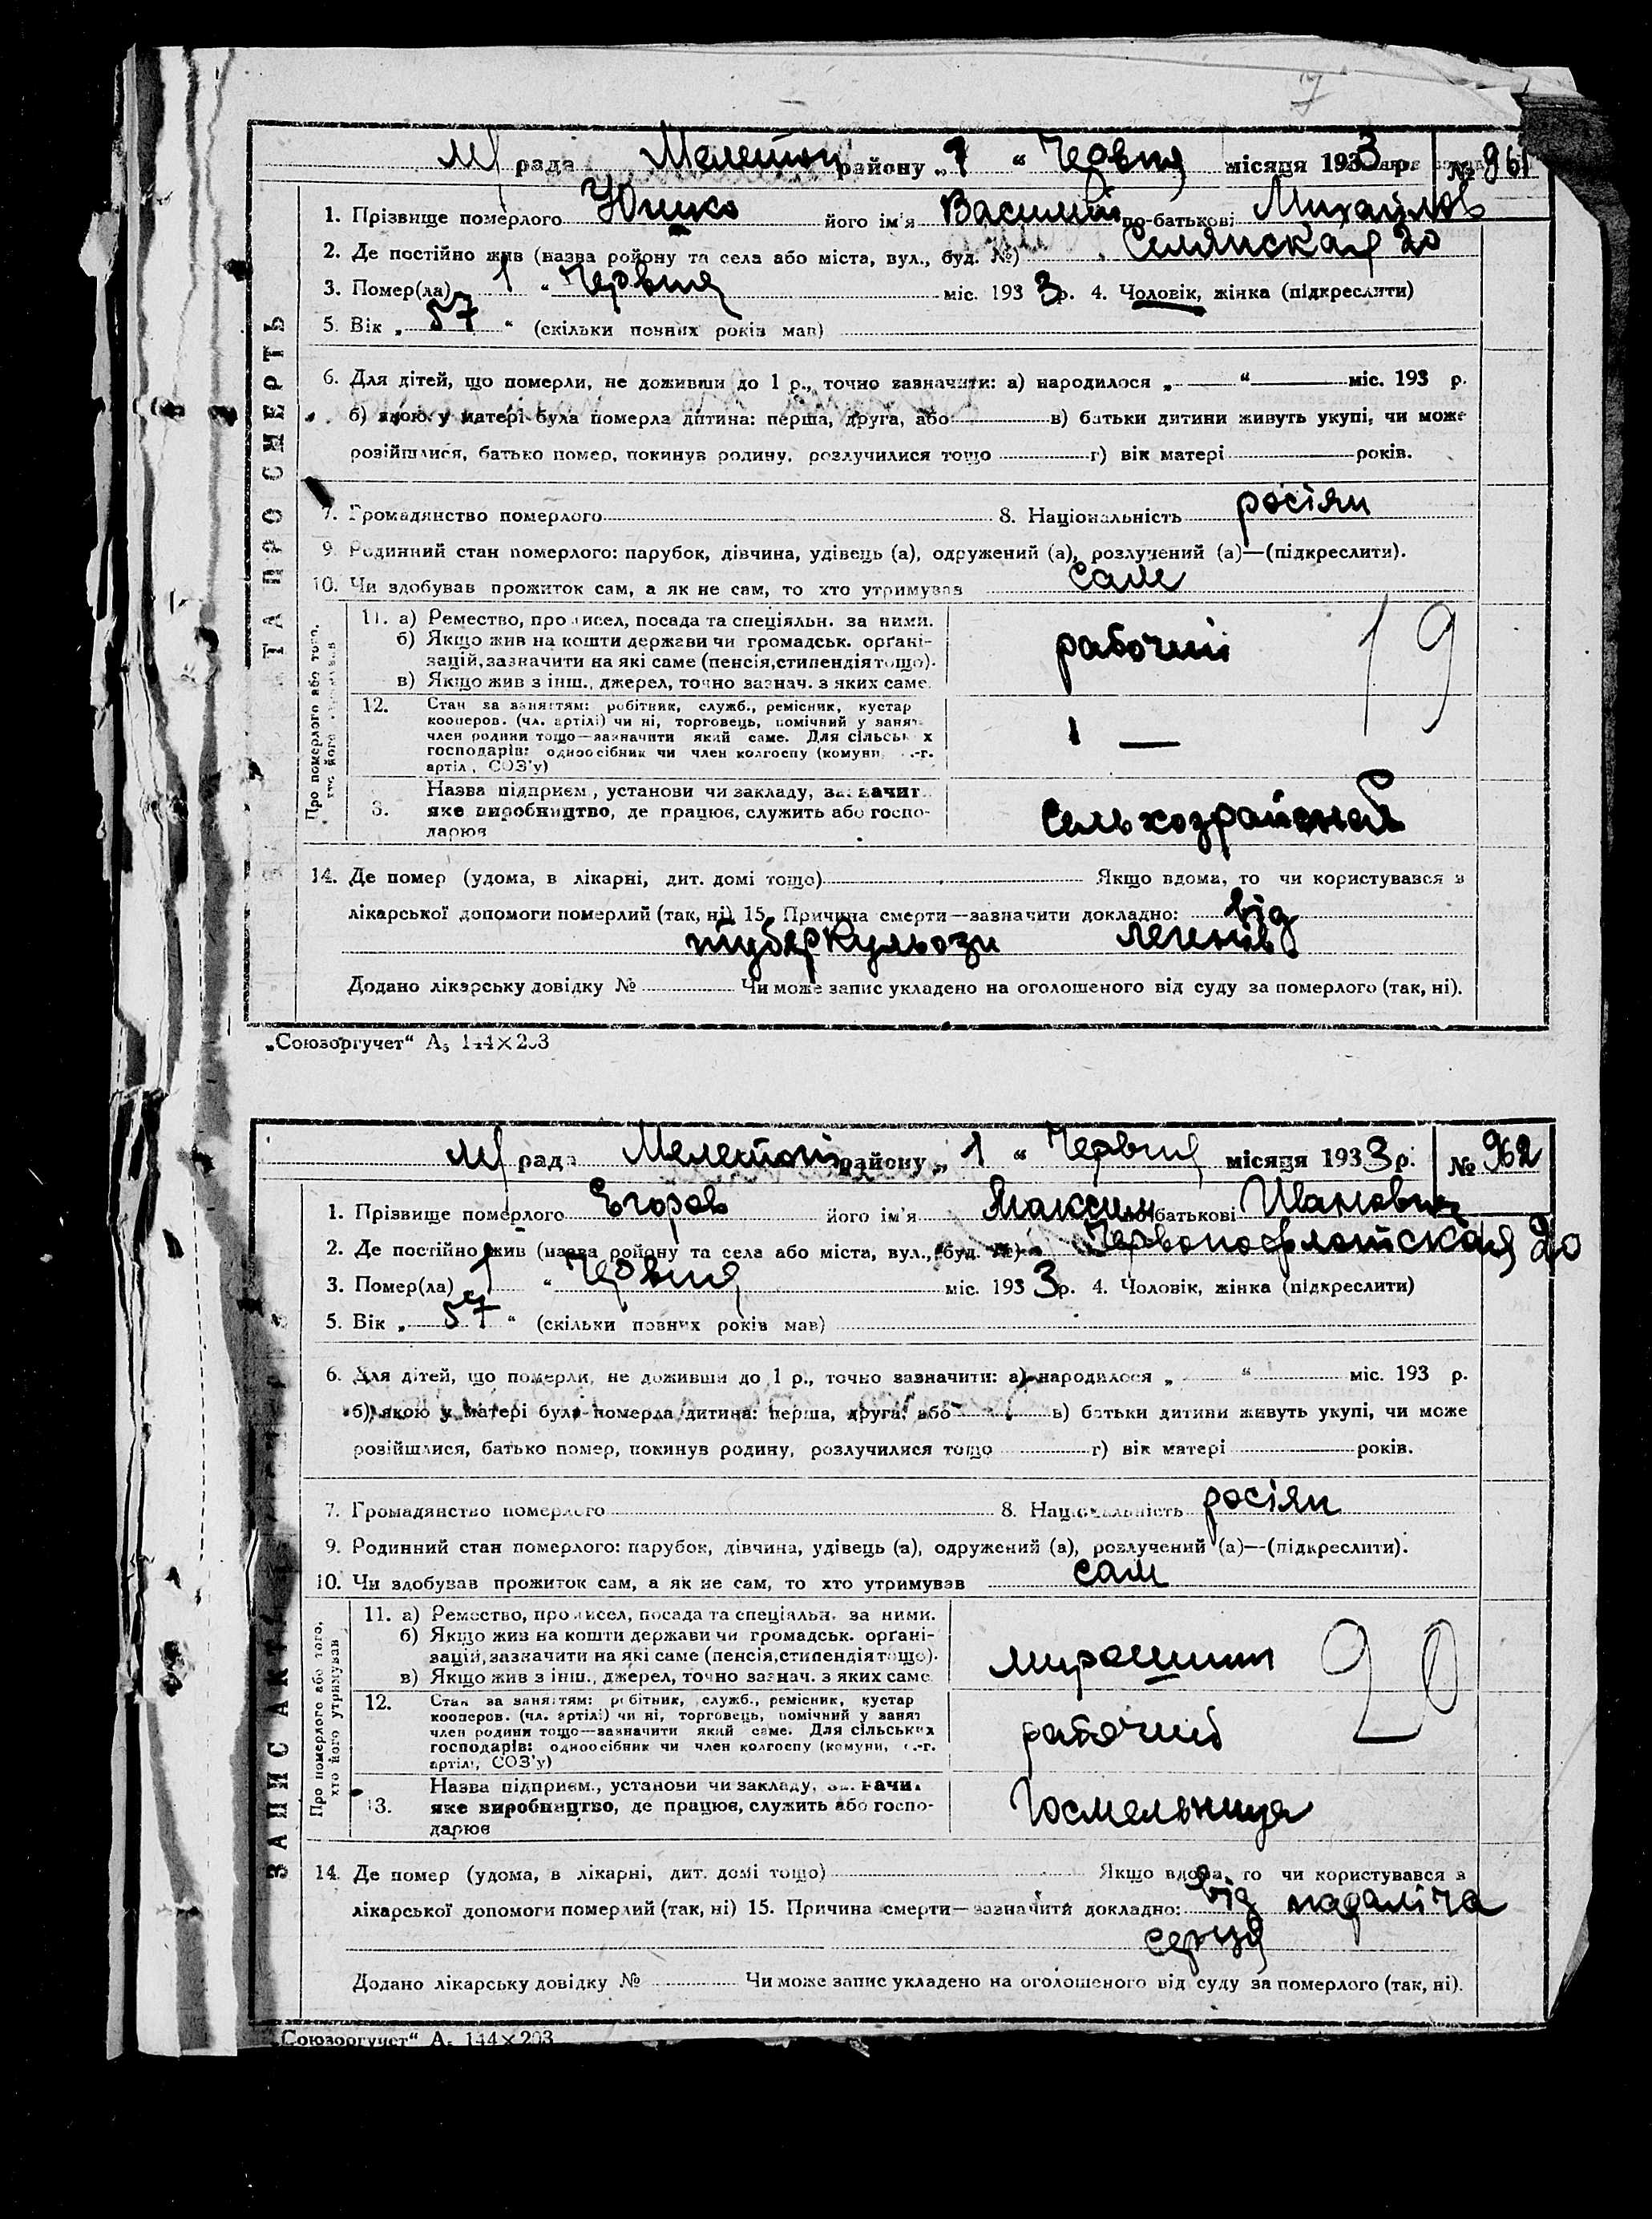 м/ рада Мелетоп району „1“ Червня місяця 1933 р. № 961
1. Прізвище померлого Юшко його ім'я Василий по-батькові Михайлов
2. Де постійно жив (назва ройону та села або міста, вул., буд. №) Селянская 20
3. Помер(ла) 1 “ Червня міс. 193 3 р. 4. Чоловік, жінка (підкреслити)
5. Вік „ 57 “ (скільки повних років мав)
6. Для дітей, що померли, не доживши до 1 р., точно зазначити: а) народилося „ “ міс. 193 р.
б) якою у матері була померла дитина: перша, друга, або в) батьки дитини живуть укупі, чи може
розійшлися, батько помер, покинув родину, розлучилися тощо г) вік матері років.
7. Громадянство померлого 8. Національність росіян
9. Родинний стан померлого: парубок, дівчина, удівець (а), одружений (а), розлучений (а)—(підкреслити).
10. Чи здобував прожиток сам, а як не сам, то хто утримував сам
11. а) Ремество, промисел, посада та спеціяльн. за ними.
б) Якщо жив на кошти держави чи громадськ. орґані-
зацій, зазначити на які саме (пенсія, стипендія тощо).
в) Якщо жив з інш., джерел, точно зазнач. з яких саме.
рабочий 19
12. Стан за заняттям: робітник, служб., ремісник, кустар
кооперов. (чл. артілі) чи ні, торговець, помічний у занят.
член родини тощо—зазначити який саме. Для сільськ х
господарів: одноосібник чи член колгоспу (комуни, .-г.
артіл, СОЗ'у)
Назва підприєм., установи чи закладу, зазначит
3. яке виробництво, де працює, служить або госпо-
дарює
14. Де помер (удома, в лікарні, дит. домі тощо) Якщо вдома, то чи користувався з
лікарської допомоги померлий (так, ні) 15. Причина смерти—зазначити докладно: від
туберкульози легенів
Додано лікарську довідку № Чи може запис укладено на оголошеного від суду за померлого (так, ні).
„Союзоргучет“ А5 144×203
м/ рада Мелетоп району „1“ Червня місяця 1933 р. № 962
1. Прізвище померлого Егоров його ім'я Максим по-батькові Иванович
2. Де постійно жив (назва ройону та села або міста, вул., буд. №) Червонофлотская 20
3. Помер(ла) 1 “ Червня міс. 193 3 р. 4. Чоловік, жінка (підкреслити)
5. Вік „ 57 “ (скільки повних років мав)
6. Для дітей, що померли, не доживши до 1 р., точно зазначити: а) народилося „ “ міс. 193 р.
б) якою у матері була померла дитина: перша, друга, або в) батьки дитини живуть укупі, чи може
розійшлися, батько помер, покинув родину, розлучилися тощо г) вік матері років.
7. Громадянство померлого 8. Національність росіян
9. Родинний стан померлого: парубок, дівчина, удівець (а), одружений (а), розлучений (а)—(підкреслити).
10. Чи здобував прожиток сам, а як не сам, то хто утримував сам
11. а) Ремество, промисел, посада та спеціяльн. за ними.
б) Якщо жив на кошти держави чи громадськ. орґані-
зацій, зазначити на які саме (пенсія, стипендія тощо).
в) Якщо жив з інш., джерел, точно зазнач. з яких саме.
20
12. Стан за заняттям: робітник, служб., ремісник, кустар
кооперов. (чл. артілі) чи ні, торговець, помічний у занят
член родини тощо—зазначити який саме. Для сільських
господарів: одноосібник чи член колгоспу (комуни, .-г.
артіл, СОЗ'у)
рабочий
Назва підприєм., установи чи закладу, зазначи.
13. яке виробництво, де працює, служить або госпо-
дарює
Госмельница
14. Де помер (удома, в лікарні, дит. домі тощо) Якщо вдома, то чи користувався з
лікарської допомоги померлий (так, ні) 15. Причина смерти—зазначити докладно: від параліча
серця
Додано лікарську довідку № Чи може запис укладено на оголошеного від суду за померлого (так, ні).
„Союзоргучет“ А5 144×203
ЗАПИС АКТ
ТА ПРО СМЕРТЬ
Про померлого або того,
хто його утримував